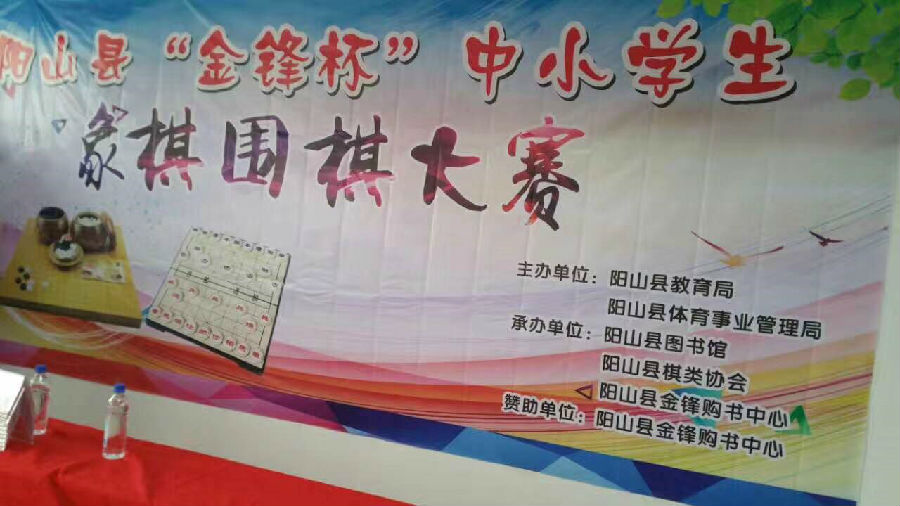 阳山县“金锋杯”中小学生
象棋围棋大赛
主办单位：阳山县教育局
阳山县体育事业管理局
承办单位：阳山县图书馆
阳山县棋类协会
阳山县金锋购书中心
赞助单位：阳山县金锋购书中心